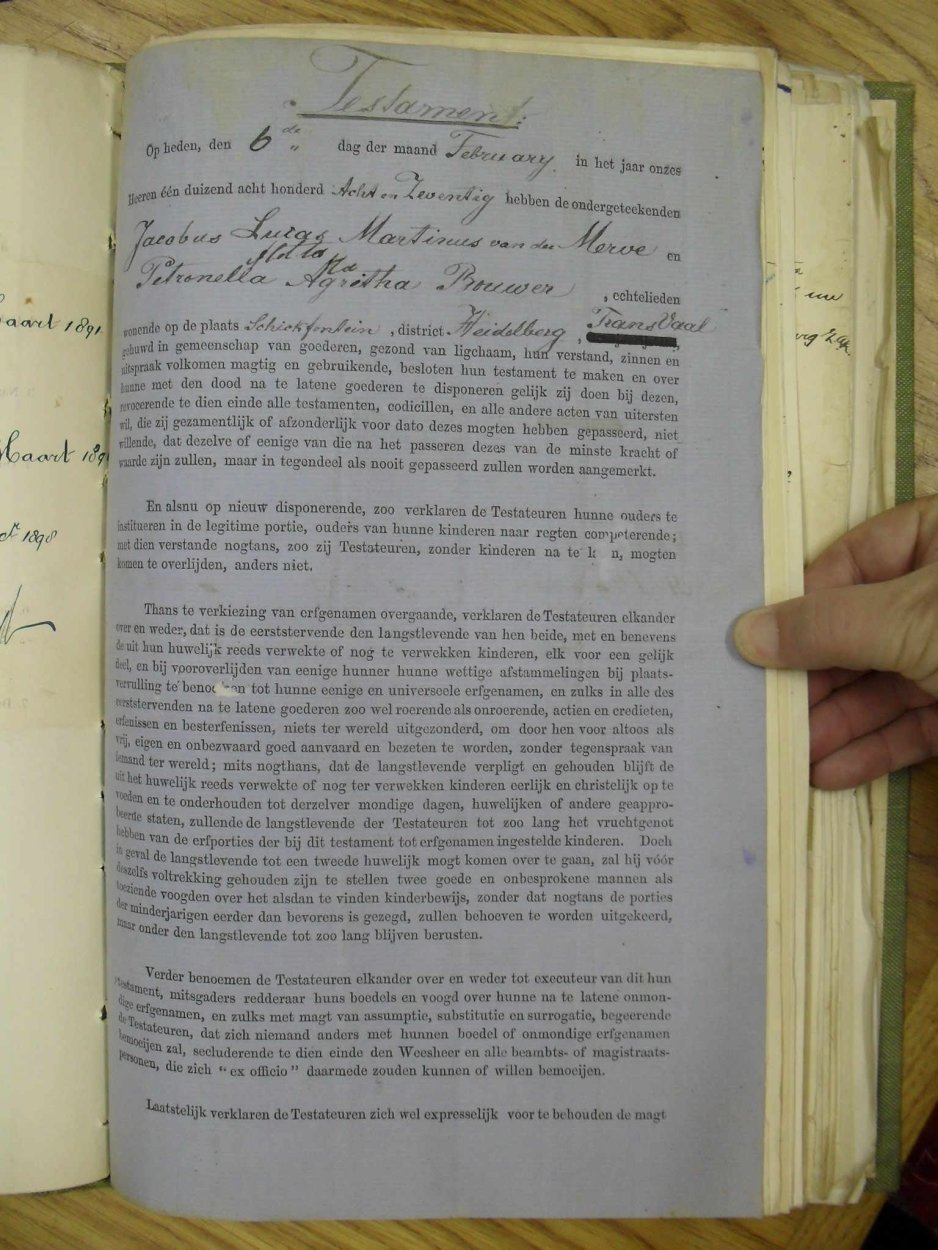 Testament:
Op heden, den 6de dag der maand February in het jaar onzes
Heeren één duizend acht honderd Acht en Zeventig hebben de ondergeteekenden
Jacobus Lucas Martinus van der Merwe en
Petronella Agretha Brouwer, echtelieden
wonende op de plaats Schickfontein, district Heidelberg, TransVaal
gehuwd in gemeenschap van goederen, gezond van ligchaam, hun verstand, zinnen en
uitspraak volkomen magtig en gebruikende, besloten hun testament te maken en over
hunne met den dood na te latene goederen te disponeren gelijk zij doen bij dezen,
revocerende te dien einde alle testamenten, codicillen, en alle andere acten van uitersten
wil, die zij gezamentlijk of afzonderlijk voor dato dezes mogten hebben gepasseerd, niet
willende, dat dezelve of eenige van die na het passeren dezes van de minste kracht of
waarde zijn zullen, maar in tegendeel als nooit gepasseerd zullen worden aangemerkt.
En alsnu op nieuw disponerende, zoo verklaren de Testateuren hunne ouders te
institueren in de legitime portie, ouders van hunne kinderen naar regten competerende;
met dien verstande nogtans, zoo zij Testateuren, zonder kinderen na te k n, mogten
komen te overlijden, anders niet.
Thans te verkiezing van erfgenamen overgaande, verklaren de Testateuren elkander
over en weder, dat is de eerststervende den langstlevende van hen beide, met en benevens
de uit hun huwelijk reeds verwekte of nog te verwekken kinderen, elk voor een gelijk
deel, en bij vooroverlijden van eenige hunner hunne wettige afstammelingen bij plaats-
vervulling te benoemen tot hunne eenige en universeele erfgenamen, en zulks in alle des
eerststervenden na te latene goederen zoo wel roerende als onroerende, actien en credieten,
erfenissen en besterfenissen, niets ter wereld uitgezonderd, om door hen voor altoos als
vrij, eigen en onbezwaard goed aanvaard en bezeten te worden, zonder tegenspraak van
iemand ter wereld; mits nogthans, dat de langstlevende verpligt en gehouden blijft de
uit het huwelijk reeds verwekte of nog ter verwekken kinderen eerlijk en christelijk op te
voeden en te onderhouden tot derzelver mondige dagen, huwelijken of andere geappro-
beerde staten, zullende de langstlevende der Testateuren tot zoo lang het vruchtgenot
hebben van de erfporties der bij dit testament tot erfgenamen ingestelde kinderen. Doch
in geval de langstlevende tot een tweede huwelijk mogt komen over te gaan, zal hij vóór
deszelfs voltrekking gehouden zijn te stellen twee goede en onbesprokene mannen als
toeziende voogden over het alsdan te vinden kinderbewijs, zonder dat nogtans de porties
der minderjarigen eerder dan bevorens is gezegd, zullen behoeven te worden uitgekeerd,
maar onder den langstlevende tot zoo lang blijven berusten.
Verder benoemen de Testateuren elkander over en weder tot executeur van dit hun
testament, mitsgaders redderaar huns boedels en voogd over hunne na te latene onmon-
dige erfgenamen, en zulks met magt van assumptie, substitutie en surrogatie, begeerende
de Testateuren, dat zich niemand anders met hunnen boedel of onmondige erfgenamen
bemoeijen zal, secluderende te dien einde den Weesheer en alle beambts- of magistraats-
personen, die zich "ex officio" daarmede zouden kunnen of willen bemoeijen.
Laatstelijk verklaren de Testateuren zich wel expresselijk voor te behouden de magt
aart 1891
Maart 189
1898